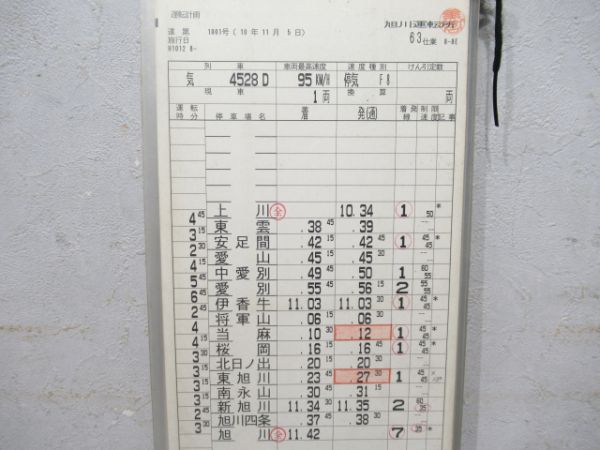 運転計画
達第 1801号(10年11月5日)
施行日
旭川運転所
63仕業
列車 車両最高速度 速度種別 けん引定数
気 4528D 95KM/H 停気 F8
現車 1両 換算 両
運転時分 停車場名 着 発(通) 着発線 制限速度 記事
上川 全 10.34 1 50 *
4 45
東雲 .38 45 .39
3 15
安足間 .42 15 .42 45 1 45 45 *
2 45
愛山 .45 30 .45 30
4
中愛別 .49 45 .50 1 60 55
5
愛別 .55 45 .56 15 2 55 55
6 45
伊香牛 11.03 11.03 30 1 45 45 *
2 45
将軍山 .06 15 .06 30
4
当麻 .10 30 .12 1 45 45 *
4 15
桜岡 .16 15 .16 45 1 45 45 *
北日ノ出 .20 15 .20 30
3
東旭川 .23 45 .27 30 1 45
3
南永山 .30 45 .31 15
3
新旭川 11.34 30 11.35 2 60 35
旭川四条 .37 45 .38 30
3 30
旭川 全 11.42 7 35 *